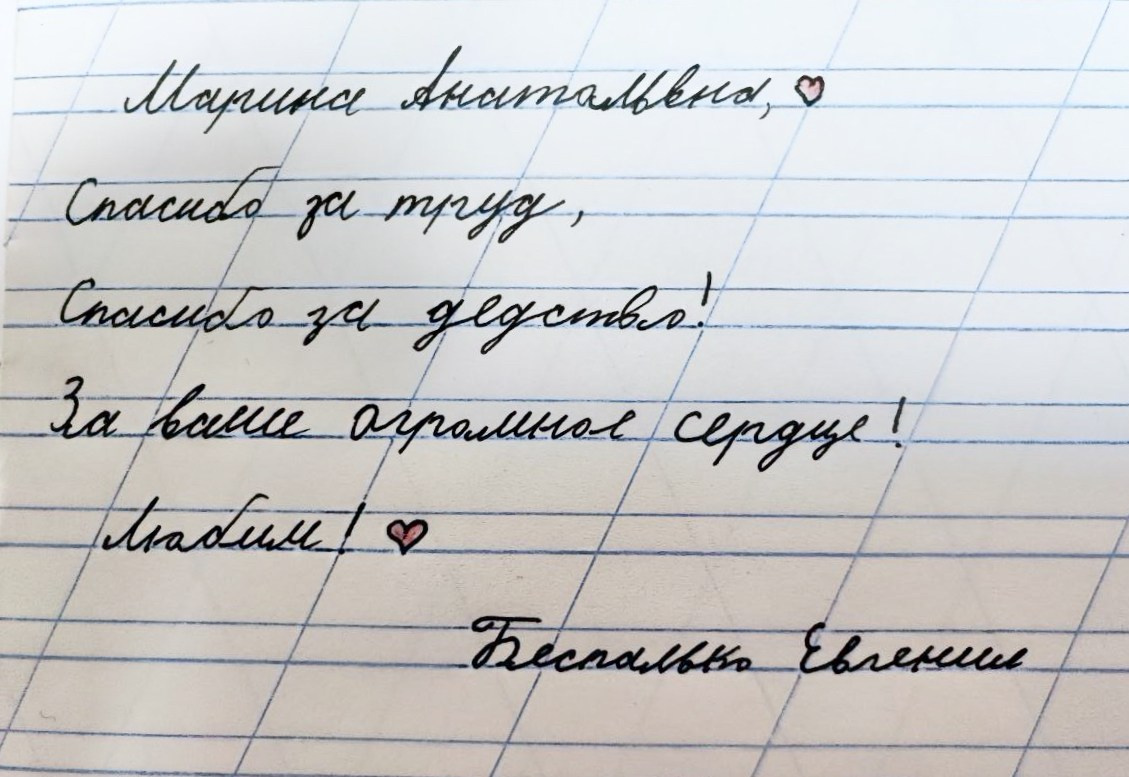 Марина Анатальвна, ♥
Спасибо за труд,
Спасибо за дедство!
За ваше огромное сердце!
Любим! ♥
Беспалько Евгении